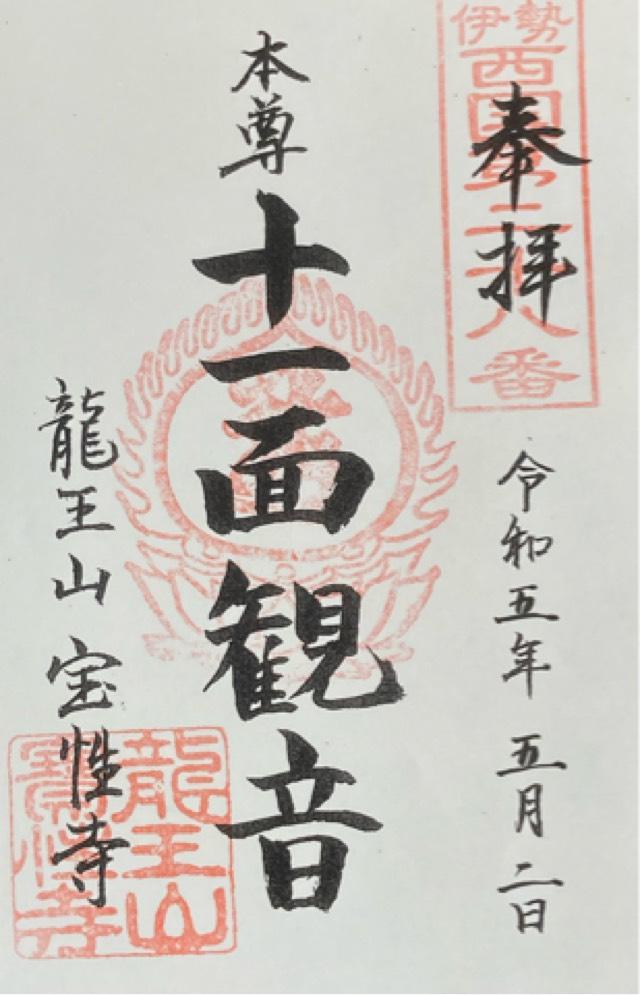 伊勢
西国第二
八番
奉拝
令和五年 五月二日
本尊
十一面観音
龍王山 宝性寺
龍王山
寶性寺